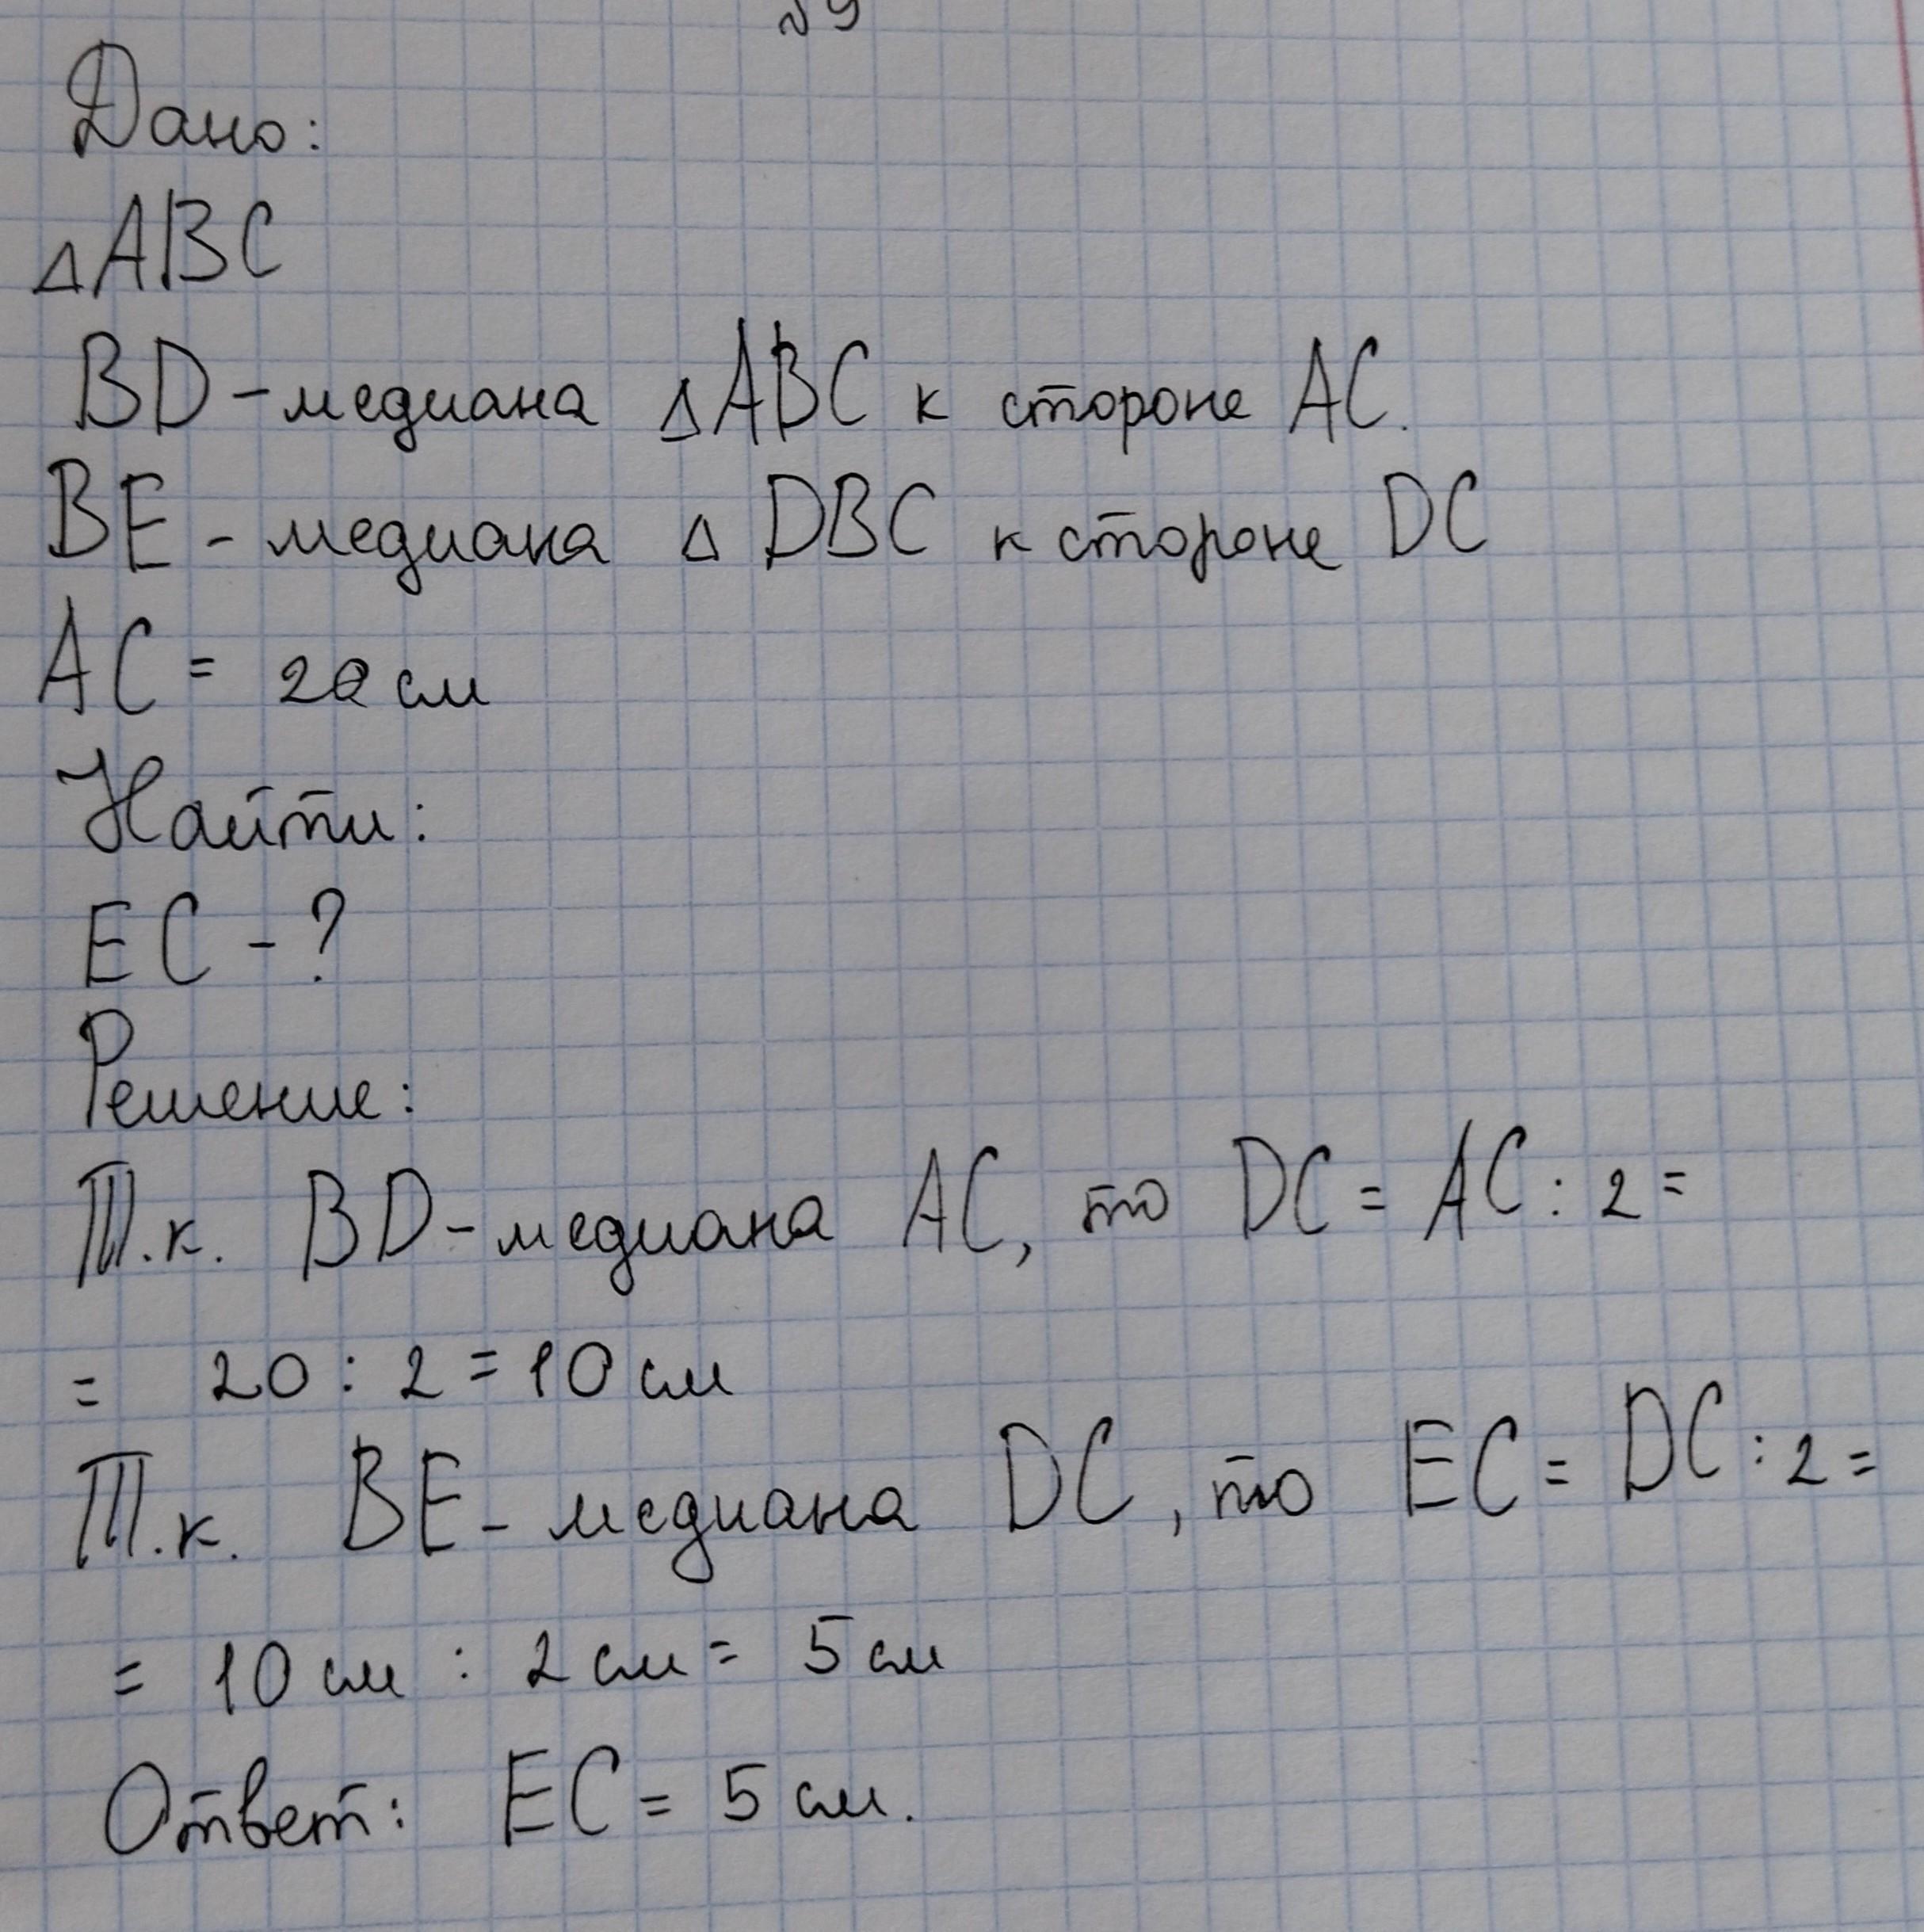 №9
Дано:
△ABC
BD - медиана △ABC к стороне AC.
BE - медиана △ DBC к стороне DC
AC = 20 см
Найти:
EC - ?
Решение:
Т.к. BD - медиана AC, то DC = AC : 2 =
= 20 : 2 = 10 см
Т.к. BE - медиана DC, то EC = DC : 2 =
= 10 см : 2 см = 5 см
Ответ: EC = 5 см.